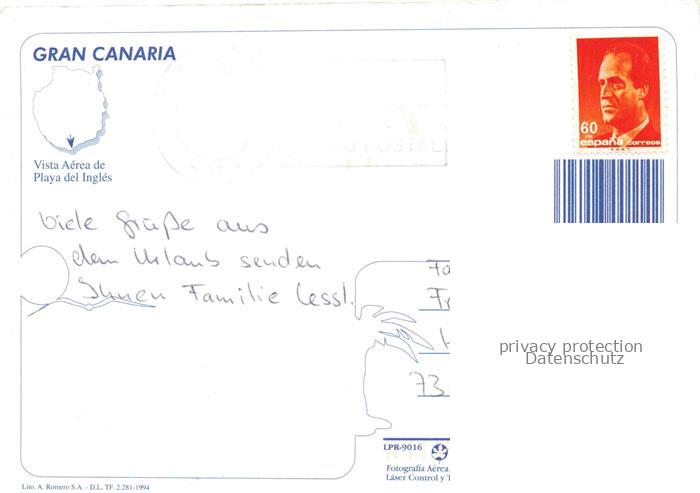 GRAN CANARIA
Vista Aérea de
Playa del Inglés
60
españa correos
POSTAL
Viele Grüße aus
dem Urlaub senden
Ihnen Familie
73
privacy protection
Datenschutz
LPR-9016
Fotografía Aérea
Láser Control y
Lito. A. Romero S.A. - D.L. TF. 2.281-1994